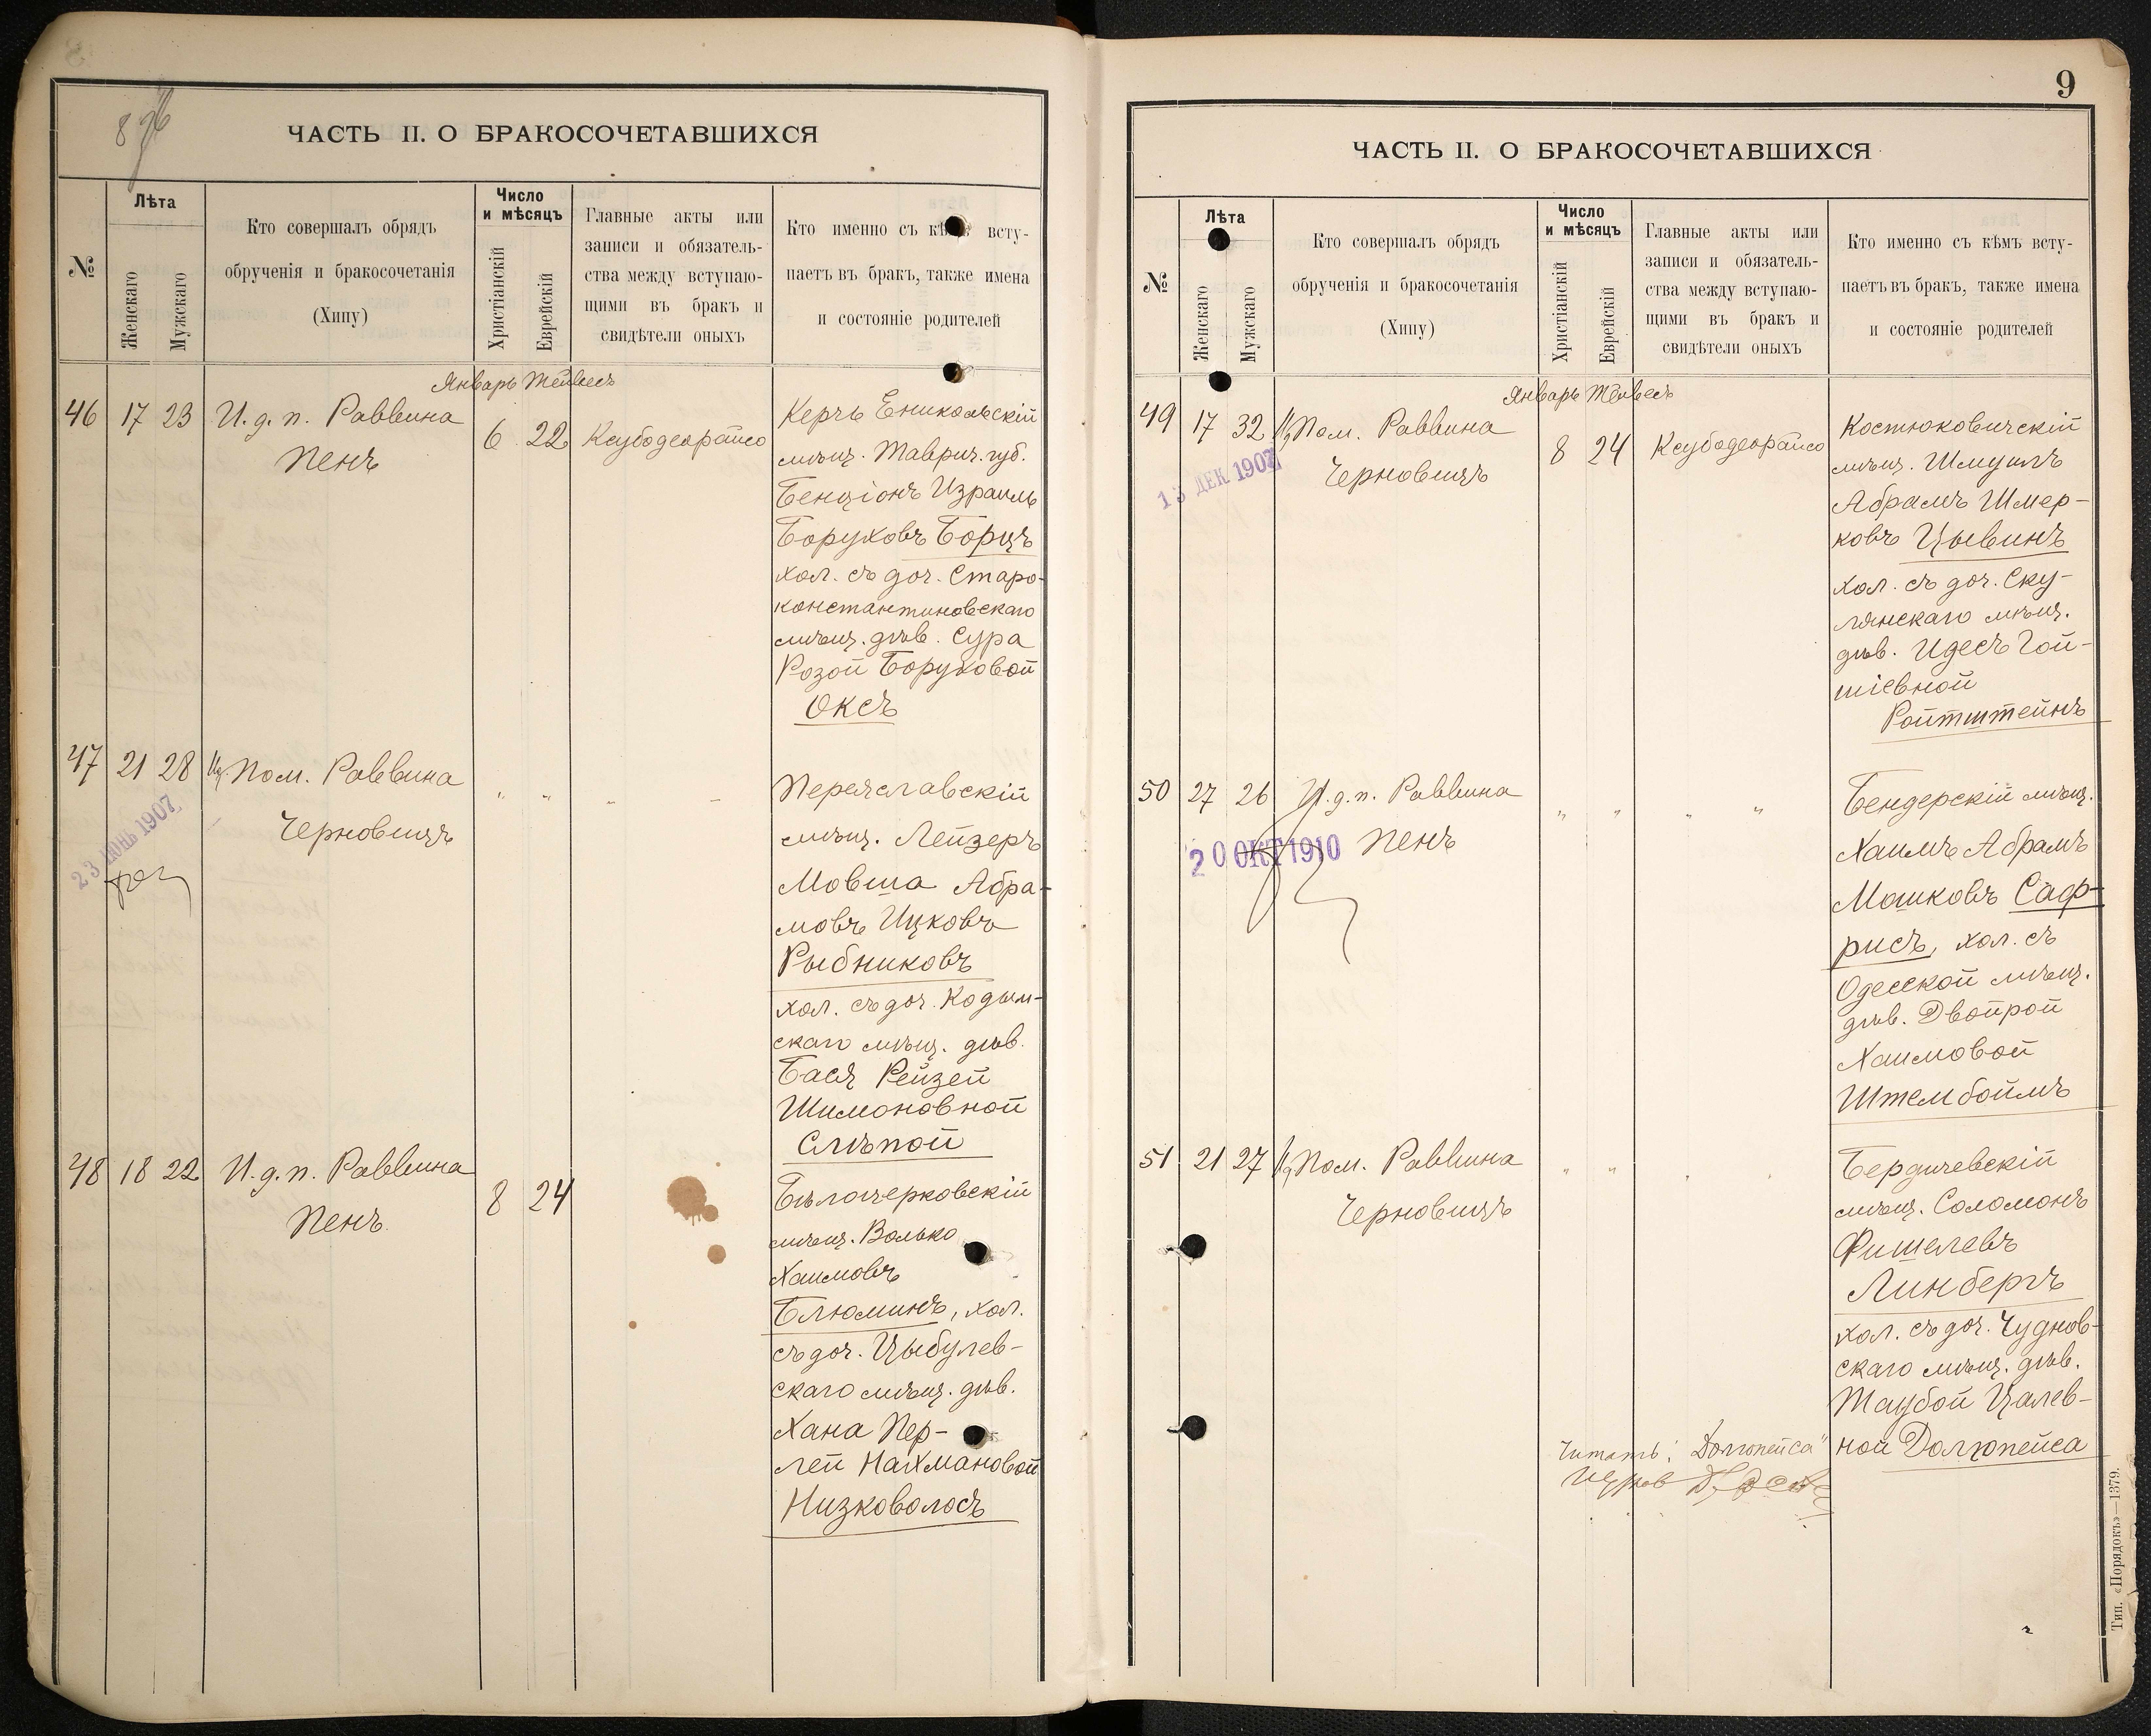 ЧАСТЬ II. О БРАКОСОЧЕТАВШИХСЯ
№
Лѣта
Женскаго
Мужскаго
Кто совершалъ обрядъ
обрученія и бракосочетанія
(Хипу)
Число
и мѣсяцъ
Христіанскій
Еврейскій
Главные акты или
записи и обязатель-
ства между вступаю-
щими въ бракъ и
свидѣтели оныхъ
Кто именно съ кѣмъ всту-
паетъ въ бракъ, также имена
и состояніе родителей
Январь Тейвесъ
46 17 23 И. д. п. Раввина
Пенъ
6 22 Ксубодеорайсо
Керчь Еникольскій
мѣщ. Таврич. губ.
Бенціонъ Израиль
Боруховъ Борщъ
хол. съ доч. Старо-
константиновскаго
мѣщ. дѣв. Сура
Розой Боруховой
Оксъ
47 21 28 Ид. Пом. Раввина
Черновицъ
" " " "
23 ІЮНЬ 1907
Переяславскій
мѣщ. Лейзеръ
Мовша Абра-
мовъ Ицковъ
Рыбниковъ
хол. съ доч. Кодым-
скаго мѣщ. дѣв.
Бася Рейзей
Шимоновной
Слѣпой
48 18 22 И. д. п. Раввина
Пенъ.
8 24
Бѣлочерковскій
мѣщ. Волько
Хаимовъ
Блюминъ, хол.
съ доч. Цыбулев-
скаго мѣщ. дѣв.
Хана Пер-
лей Нахмановой
Низковолосъ
9
ЧАСТЬ II. О БРАКОСОЧЕТАВШИХСЯ
№
Лѣта
Женскаго
Мужскаго
Кто совершалъ обрядъ
обрученія и бракосочетанія
(Хипу)
Число
и мѣсяцъ
Христіанскій
Еврейскій
Главные акты или
записи и обязатель-
ства между вступаю-
щими въ бракъ и
свидѣтели оныхъ
Кто именно съ кѣмъ всту-
паетъ въ бракъ, также имена
и состояніе родителей
Январь Тейвесъ
49 17 32 Ид Пом. Раввина
Черновицъ
8 24 Ксубодеорайсо
13 ДЕК 1907
Костюковичскій
мѣщ. Шмуилъ
Абрамъ Шмер-
ковъ Цывинъ
хол. съ доч. Ску-
лянскаго мѣщ.
дѣв. Идесъ Гой-
шіевной
Ройтштейнъ
50 27 26 И. д. п. Раввина
Пенъ
" " " "
20 ОКТ 1910
Бендерскій мѣщ.
Хаимъ Абрамъ
Машковъ Саф-
рисъ, хол. съ
Одесской мѣщ.
дѣв. Двойрой
Хаимовой
Штембоймъ
51 21 27 Ид Пом. Раввина
Черновицъ
" " " "
Бердичевскій
мѣщ. Соломонъ
Фишелевъ
Линбергъ
хол. съ доч. Чуднов-
скаго мѣщ. дѣв.
Таубой Цалев-
ной Долгопейса
Читать: „Долгопейса"
Тип. «Порядокъ»—1379.